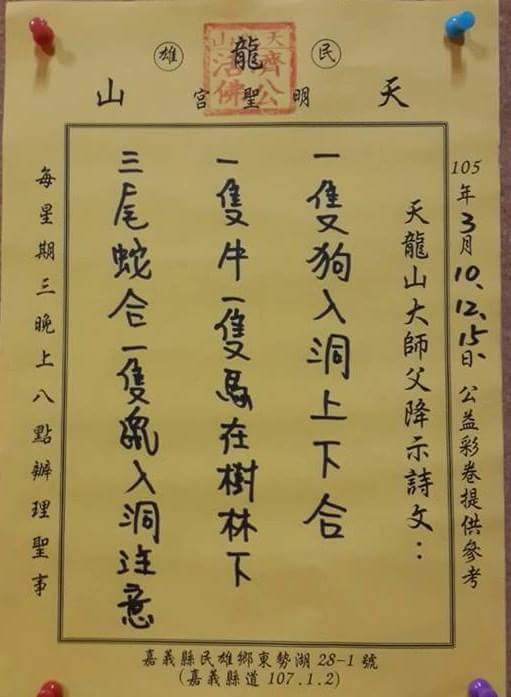 民雄
天龍山
明聖宮
天山濟公活佛
105年3月10、12、15日、公益彩卷提供參考
天龍山大師父降示詩文：
一隻狗入洞上下合
一隻牛一隻馬在樹林下
三尾蛇合一隻鼠入洞注意
每星期三晚上八點辦理聖事
嘉義縣民雄鄉東勢湖 28-1 號
(嘉義縣道 107.1.2)